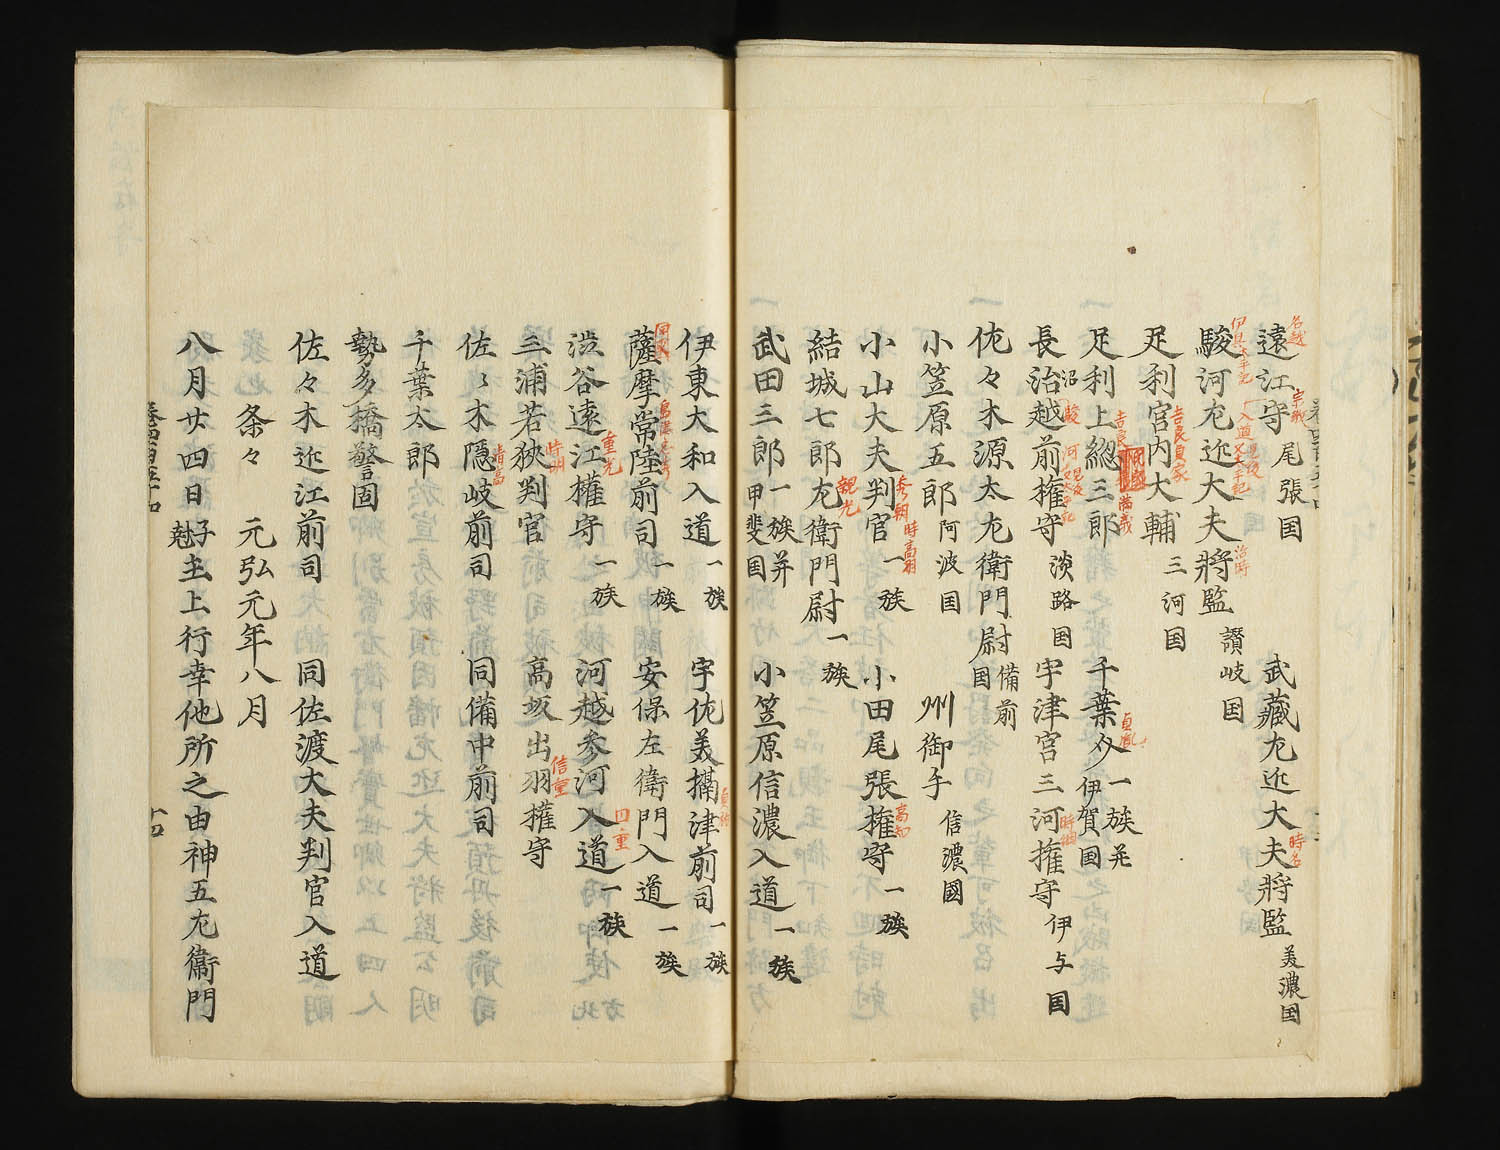 遠江守 尾張国 武藏左近大夫将監 美濃国
駿河左近大夫將監 讃岐国
足利宮内大輔 三河国
足利上総三郎 千葉介 一族并伊賀国
長沼越前権守 淡路国 宇津宮三河権守 伊与国
佐々木源太左衛門尉 備前国
小笠原五郎 阿波国 州御手 信濃國
小山大夫判官 一族 小田尾張権守 一族
結城七郎左衛門尉 一族
武田三郎 一族并甲斐国 小笠原信濃入道 一族
伊東大和入道 一族 宇佐美摂津前司 一族
薩摩常陸前司 一族 安保左衛門入道 一族
渋谷遠江権守 一族 河越参河入道 一族
三浦若狭判官 高坂出羽権守
佐々木隠岐前司 同備中前司
千葉太郎
勢多橋警固
佐々木近江前司 同佐渡大夫判官入道
条々 元弘元年八月
八月廿四日 子尅 主上行幸他所之由神五左衛門
十四
名越
宗教
治時
時名
吉良貞家
吉良
満義
貞胤
秀朝
時高
高知
親光
重光
時明
清高
信重